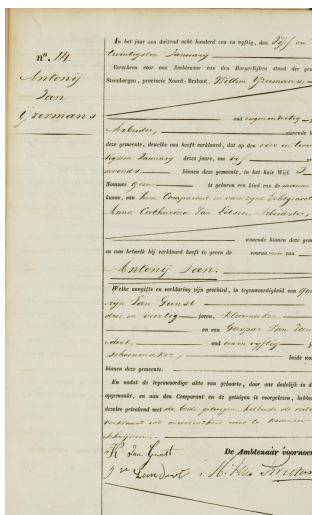 nº. 14.
Antonij
Jan
IJzermans
In het jaar een duizend acht honderd een en vyftig, den Vyf en
twintigsten January
Verscheen voor ons Ambtenaar van den Burgerlijken stand der gem
Steenbergen, provincie Noord-Brabant, Willem IJzermans
oud negenendertig
Arbeider, wonende b
deze gemeente, dewelke ons heeft verklaard, dat op den vier en twin
tigsten January dezes jaars, om vyf ur
avonds binnen deze gemeente, in het huis Wijk
Nommer geen is geboren een kind van de
kunne, van hem Comparant en van zyne Echtgenoot
Anna Catharina Van Eitsen, Arbeidster,
wonende binnen deze geme
en aan hetwelk hij verklaard heeft te geven de voornamen van
Antonij Jan.
Welke aangifte en verklaring zijn geschied, in tegenwoordigheid van
ryn Van Gunst
drie en veertig jaren, kleermaker
en van Gaspar Van Lun
dert, oud een en vyftig
schoenmaker, beide wo
binnen deze gemeente.
En nadat de tegenwoordige akte van geboorte, door ons dadelijk in d
opgemaakt, en aan den Comparant en de getuigen is voorgelezen, hebbe
dezelve geteekend met de beide getuigen, hebbende de vader
verklaard uit onwetendheid niet te kunnen
schrijven.
K Van Gunst De Ambtenaar voornoem
g v Lundert